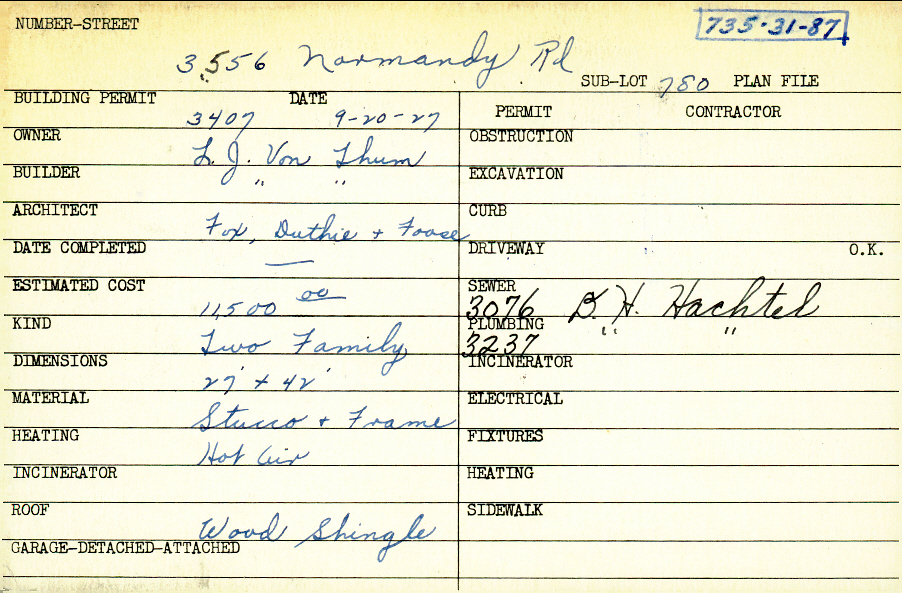 NUMBER-STREET
735-31-87
3556 Normandy Rd
SUB-LOT 780 PLAN FILE
BUILDING PERMIT DATE
3407 9-20-27
PERMIT CONTRACTOR
OWNER L. J. Von Thum
OBSTRUCTION
BUILDER " "
EXCAVATION
ARCHITECT Fox, Duthie + Foose
CURB
DATE COMPLETED —
DRIVEWAY O.K.
ESTIMATED COST 11,500 00
SEWER 3076 B. H. Hachtel
KIND Two Family
PLUMBING 3237 " "
DIMENSIONS 27' + 42'
INCINERATOR
MATERIAL Stucco + Frame
ELECTRICAL
HEATING Hot Air
FIXTURES
INCINERATOR
HEATING
ROOF Wood Shingle
SIDEWALK
GARAGE-DETACHED-ATTACHED